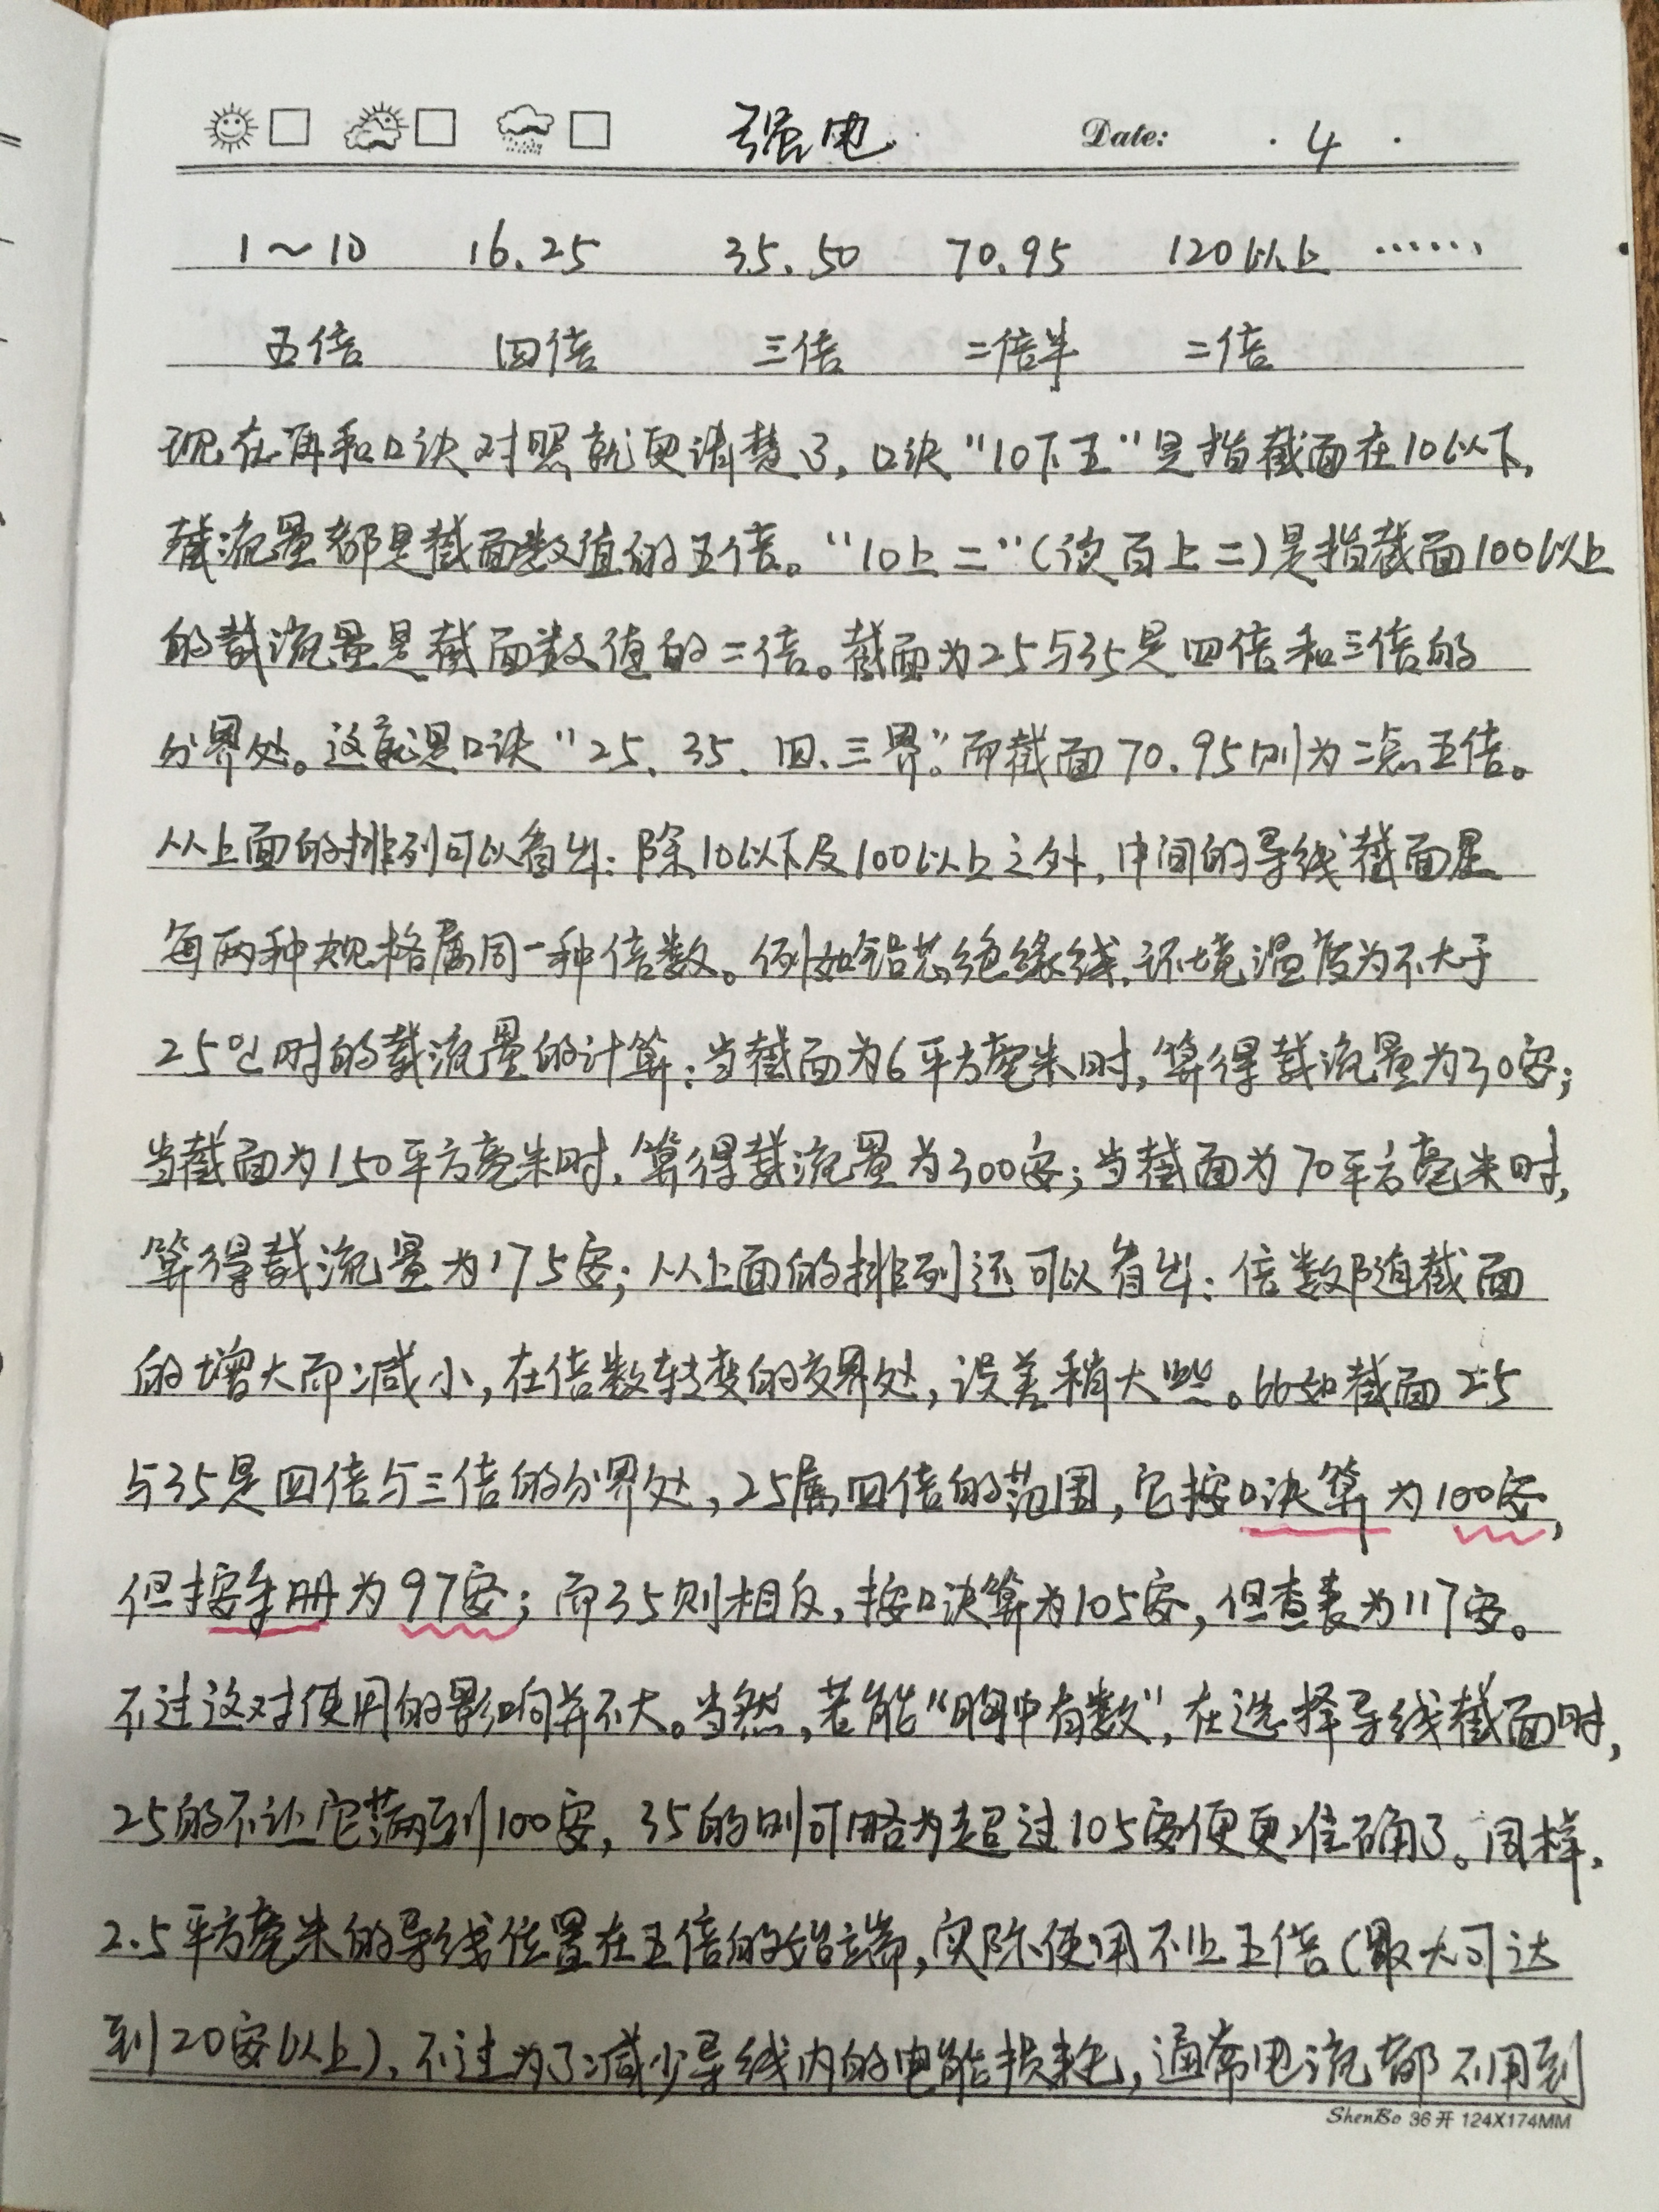 强电 Date: · 4 ·
1～10 16.25 35.50 70.95 120以上 ……
五倍 四倍 三倍 二倍半 二倍
现在再和口诀对照就更清楚了，口诀“10下五”是指截面在10以下，
截流量都是截面数值的五倍。“10上二”（读百上二）是指截面100以上
的载流量是截面数值的二倍。截面为25与35是四倍和三倍的
分界处。这就是口诀“25、35、四、三界。”而截面70.95则为二点五倍。
从上面的排列可以看出：除10以下及100以上之外，中间的导线截面是
每两种规格属同一种倍数。例如铝芯绝缘线，环境温度为不大于
25℃时的载流量的计算：当截面为6平方毫米时，算得载流量为30安；
当截面为150平方毫米时，算得载流量为300安；当截面为70平方毫米时，
算得载流量为175安；从上面的排列还可以看出：倍数随截面
的增大而减小，在倍数转变的交界处，误差稍大些。比如截面25
与35是四倍与三倍的分界处，25属四倍的范围，它按口诀算为100安，
但按手册为97安；而35则相反，按口诀算为105安，但查表为117安。
不过这对使用的影响并不大。当然，若能“胸中有数”，在选择导线截面时，
25的不让它满到100安，35的则可略为超过105安便更准确了。同样，
2.5平方毫米的导线位置在五倍的始端，实际使用不止五倍（最大可达
到20安以上），不过为了减少导线内的电能损耗，通常电流都不用到
ShenBo 36开 124X174MM